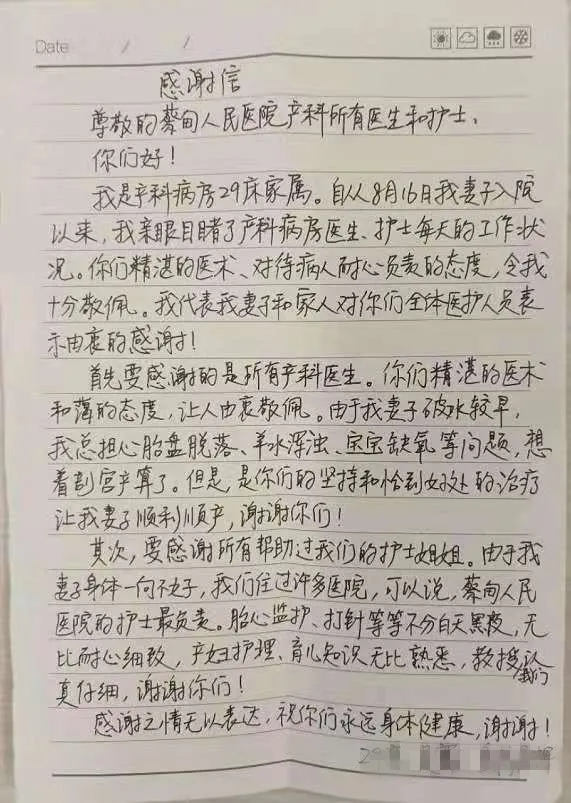 Date / /
感谢信
尊敬的蔡甸人民医院产科所有医生和护士:
你们好!
我是产科病房29床家属。自从8月16日我妻子入院
以来,我亲眼目睹了产科病房医生、护士每天的工作状
况。你们精湛的医术、对待病人耐心负责的态度,令我
十分敬佩。我代表我妻子和家人对你们全体医护人员表
示由衷的感谢!
首先要感谢的是所有产科医生。你们精湛的医术
和蔼的态度,让人由衷敬佩。由于我妻子破水较早,
我总担心胎盘脱落、羊水浑浊、宝宝缺氧等问题,想
着剖宫产算了。但是,是你们的坚持和恰到好处的治疗
让我妻子顺利顺产,谢谢你们!
其次,要感谢所有帮助过我们的护士姐姐。由于我
妻子身体一向不好,我们住过许多医院,可以说,蔡甸人民
医院的护士最负责。胎心监护、打针等等不分白天黑夜,无
比耐心细致,产妇护理、育儿知识无比熟悉,教授我们认
真仔细,谢谢你们!
感谢之情无以表达,祝你们永远身体健康,谢谢!
29